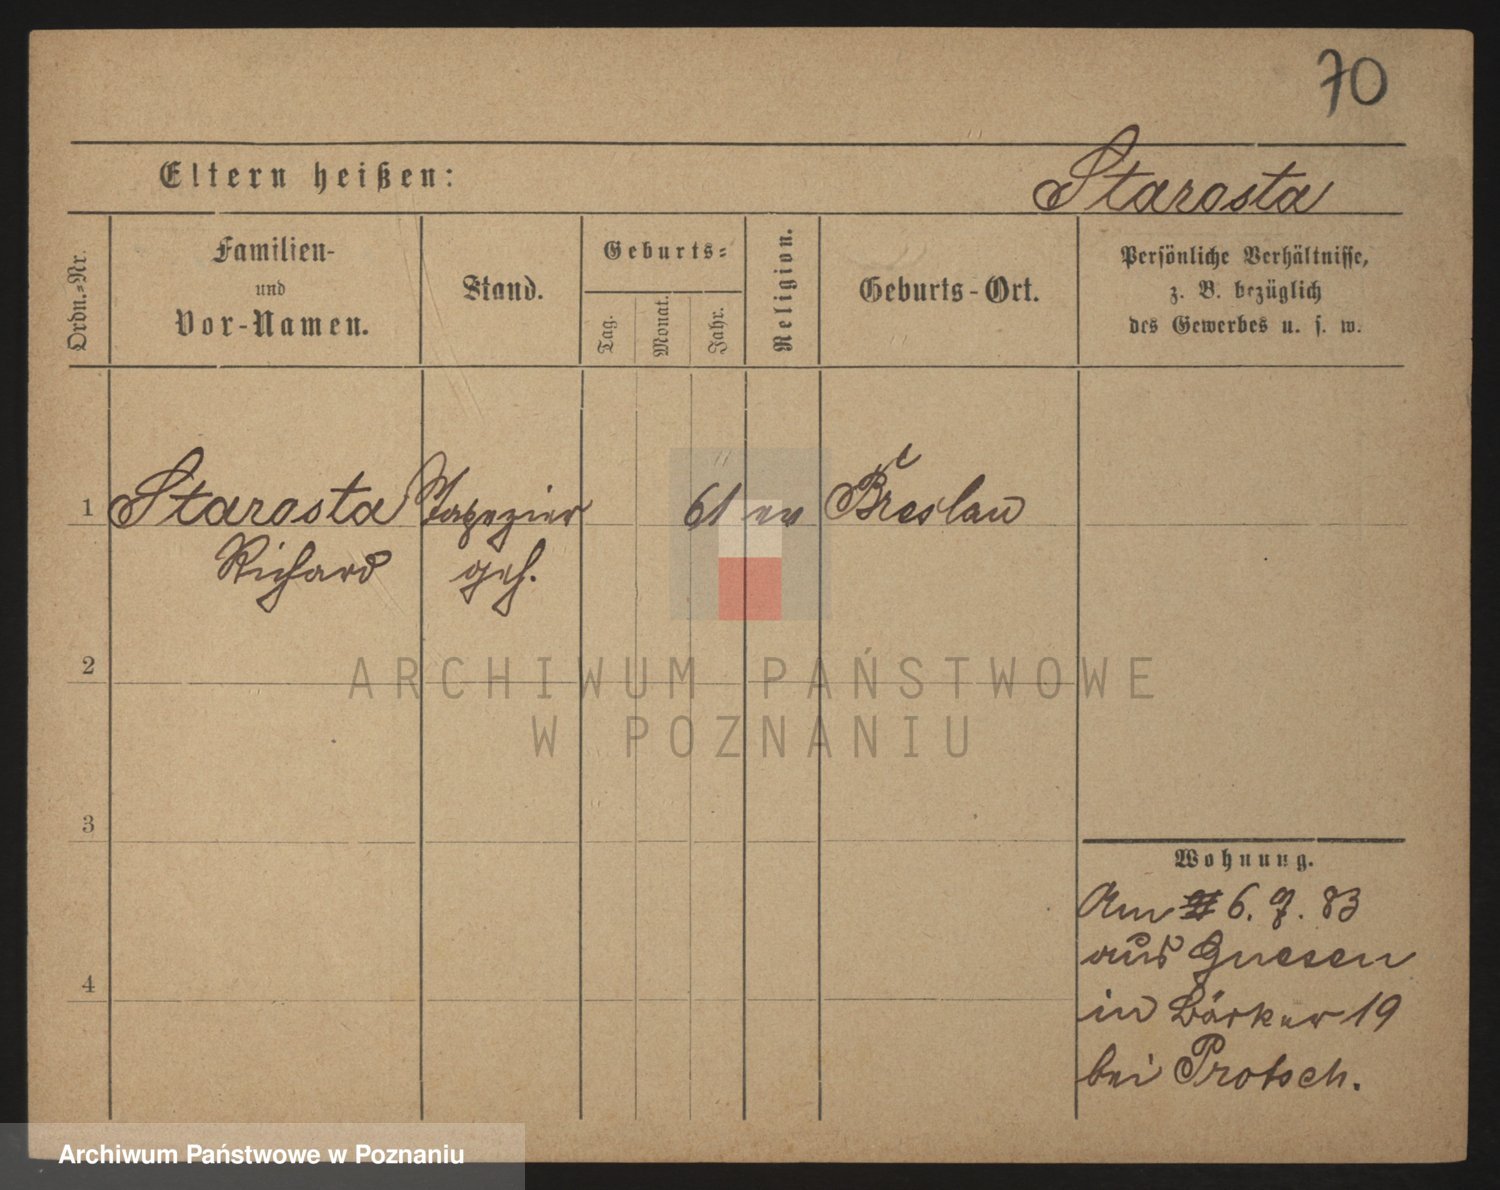 70
Eltern heißen:
Starosta
Ordn.=Nr.
Familien-
und
Vor-Namen.
Stand.
Geburts=
Tag.
Monat.
Jahr.
Religion.
Geburts-Ort.
Persönliche Verhältnisse,
z. B. bezüglich
des Gewerbes u. s. w.
1
Starosta
Tapezier
61
ev
Breslau
Richard
geh.
2
ARCHIWUM PAŃSTWOWE
W POZNANIU
3
Wohnung.
Am 6. 7. 83
aus Gnesen
4
in 19
bei Protsch.
Archiwum Państwowe w Poznaniu